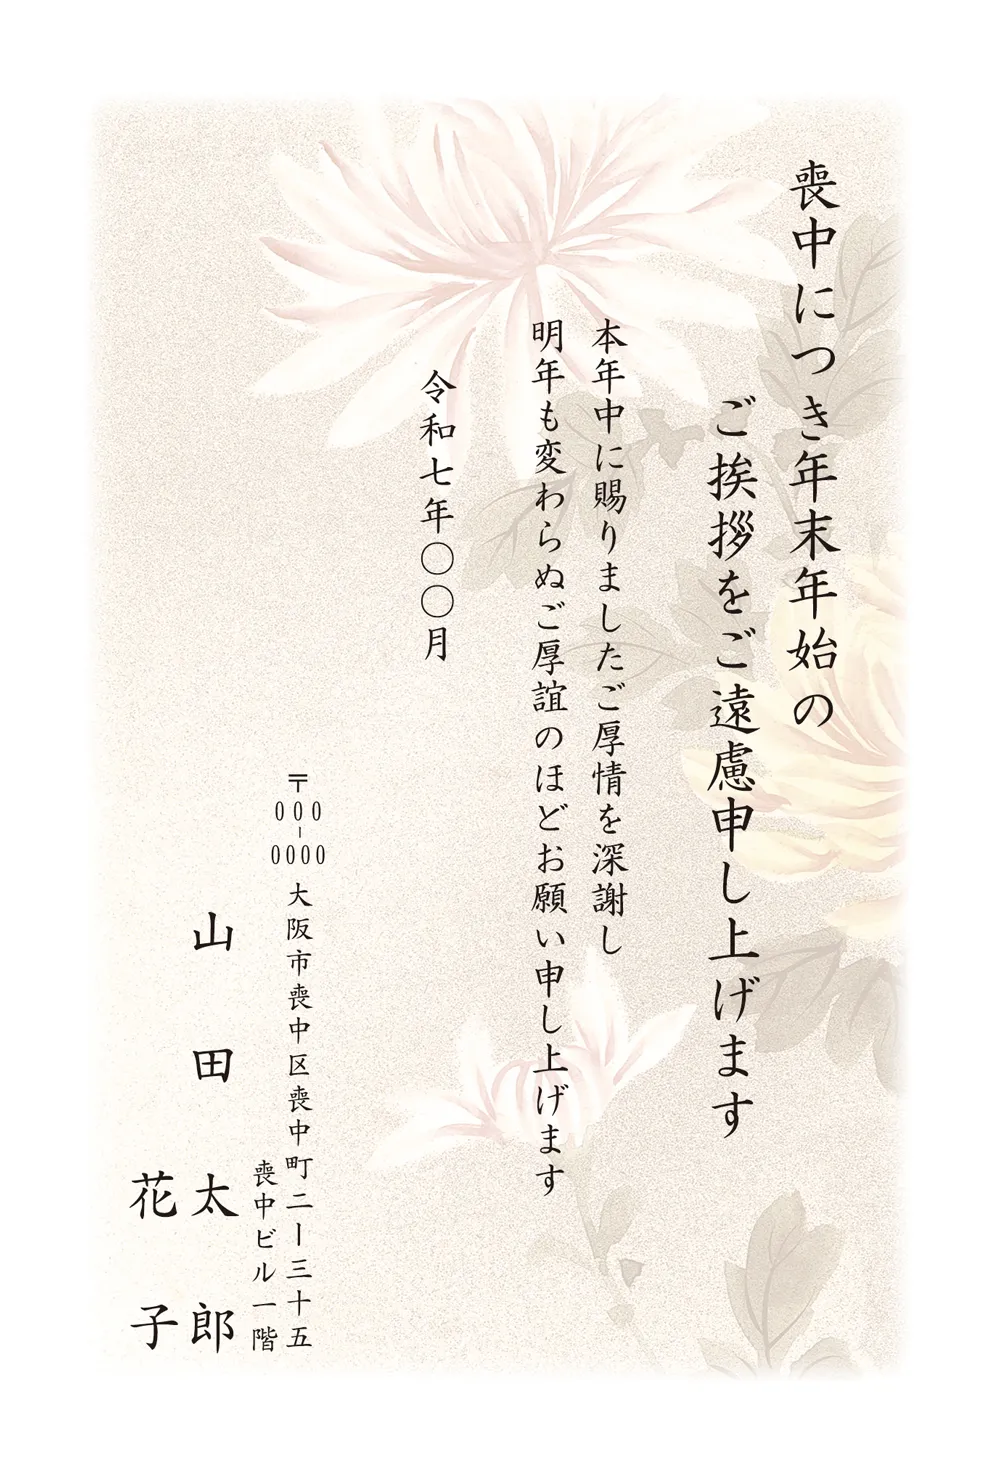 喪中につき年末年始の
ご挨拶をご遠慮申し上げます
本年中に賜りましたご厚情を深謝し
明年も変わらぬご厚誼のほどお願い申し上げます
令和七年〇〇月
〒000-0000 大阪市喪中区喪中町二ー三十五
喪中ビル一階
山田 太郎
花子